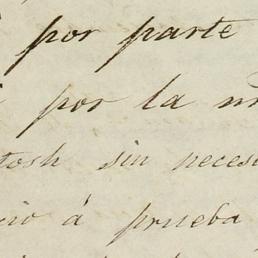 por parte
por la
tosh sin neces
cio á prueba